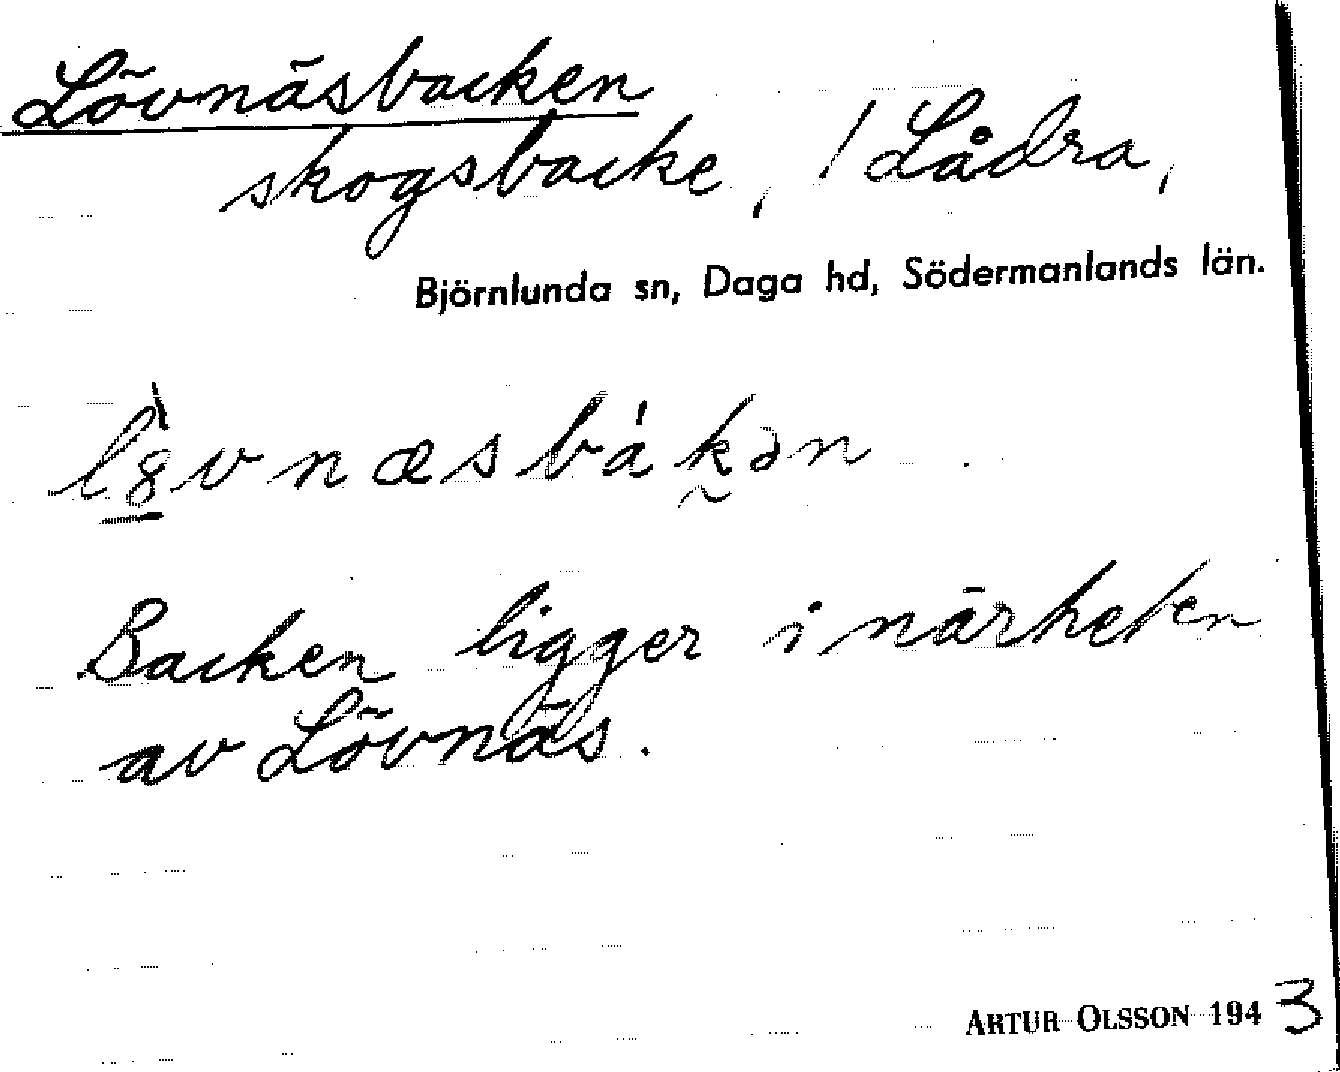 Lövnäsbacken
skogsbacke, / Lådra,
Björnlunda sn, Daga hd, Södermanlands län.
l8̀vnæsbákən
Backen ligger i närheten
av Lövnäs.
ARTUR OLSSON 1943